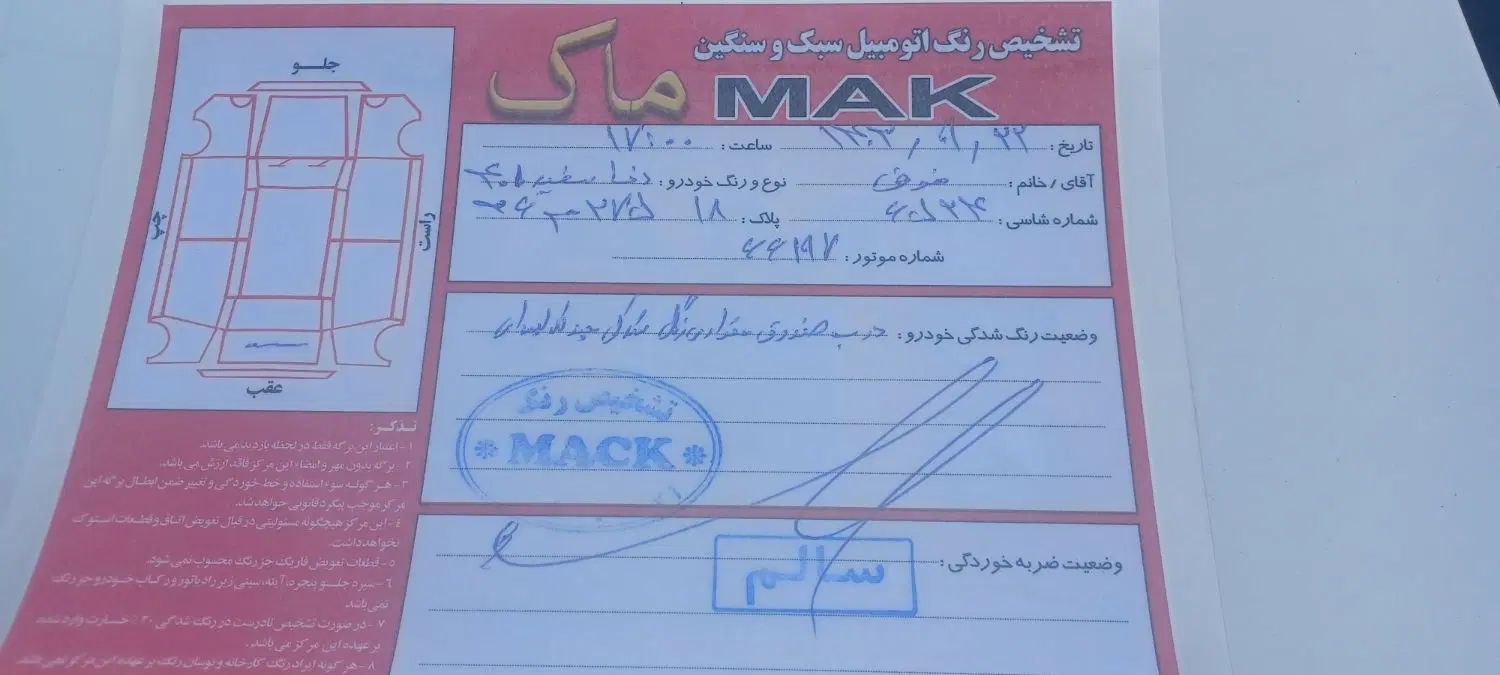 تشخیص رنگ اتومبیل سبک و سنگین
ماک MAK
تاریخ: ۱۴۰۳
ساعت: ۱۷:۰۰
آقای / خانم:
نوع و رنگ خودرو: دنا سفید ۱۴۰۱
شماره شاسی:
پلاک: ۱۸
شماره موتور: ۶۶۱۹۷
جلـــو
چپ
راست
عقب
وضعیت رنگ شدگی خودرو: درب صندوق مقداری رنگ
تشخیص رنگ
MACK
وضعیت ضربه خوردگی:
سالم
تذکر:
۱- اعتبار این برگه فقط در لحظه بازدید می باشد.
۲- برگه بدون مهر و امضاء این مرکز فاقد ارزش می باشد.
۳- هر گونه سوء استفاده و خط خوردگی و تغییر ضمن ابطال برگه این
مرکز موجب پیگرد قانونی خواهد شد.
٤- این مرکز هیچگونه مسئولیتی در قبال تعویض اتاق و قطعات استوک
نخواهد داشت.
٥- قطعات تعویض فابریک جز رنگ محسوب نمی شود.
٦- سپره جلو پنجره، آینه، سینی زیر رادیاتور و رکاب خودرو جز رنگ
نمی باشد.
۷- در صورت تشخیص نادرست در رنگ شدگی ۳۰٪ خسارت وارد شده
بر عهده این مرکز می باشد.
۸- هر گونه ایراد رنگ کارخانه و نوسان رنگ بر عهده این مرکز نمی باشد